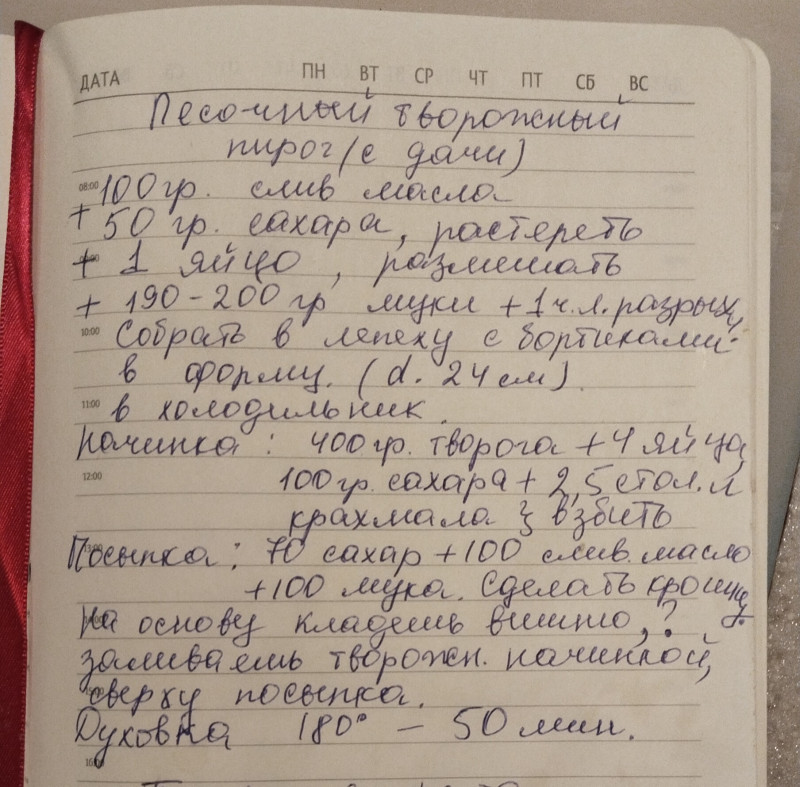 ДАТА ПН ВТ СР ЧТ ПТ СБ ВС
Песочный творожный
пирог (с дачи)
08:00 100 гр. слив масла
+ 50 гр. сахара, растереть
+ 1 яйцо, размешать
+ 190-200 гр муки + 1 ч.л. разрых.
10:00 Собрать в лепеху с бортиками
в форму. (d. 24 см)
11:00 в холодильник.
начинка: 400 гр. творога + 4 яйца,
12:00 100 гр. сахара + 2,5 стол. л
крахмала } взбить
Посыпка: 70 сахар + 100 слив. масло
+100 мука. Сделать крошку.
На основу кладешь вишню, ?
заливаешь творожн. начинкой,
сверху посыпка.
Духовка 180° – 50 мин.
16:00